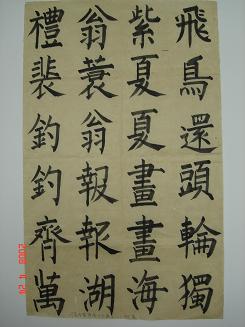 飛鳥還頭輪獨
紫夏夏畫畫海
翁蓑翁報報湖
禮裴釣釣齊萬
2008 4 24